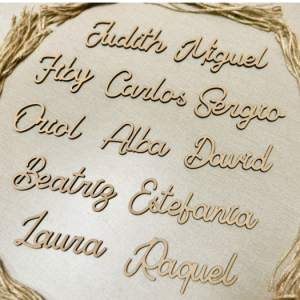 Judith Miguel
Abby Carlos Sergio
Oriol Alba David
Beatriz Estefania
Laura Raquel